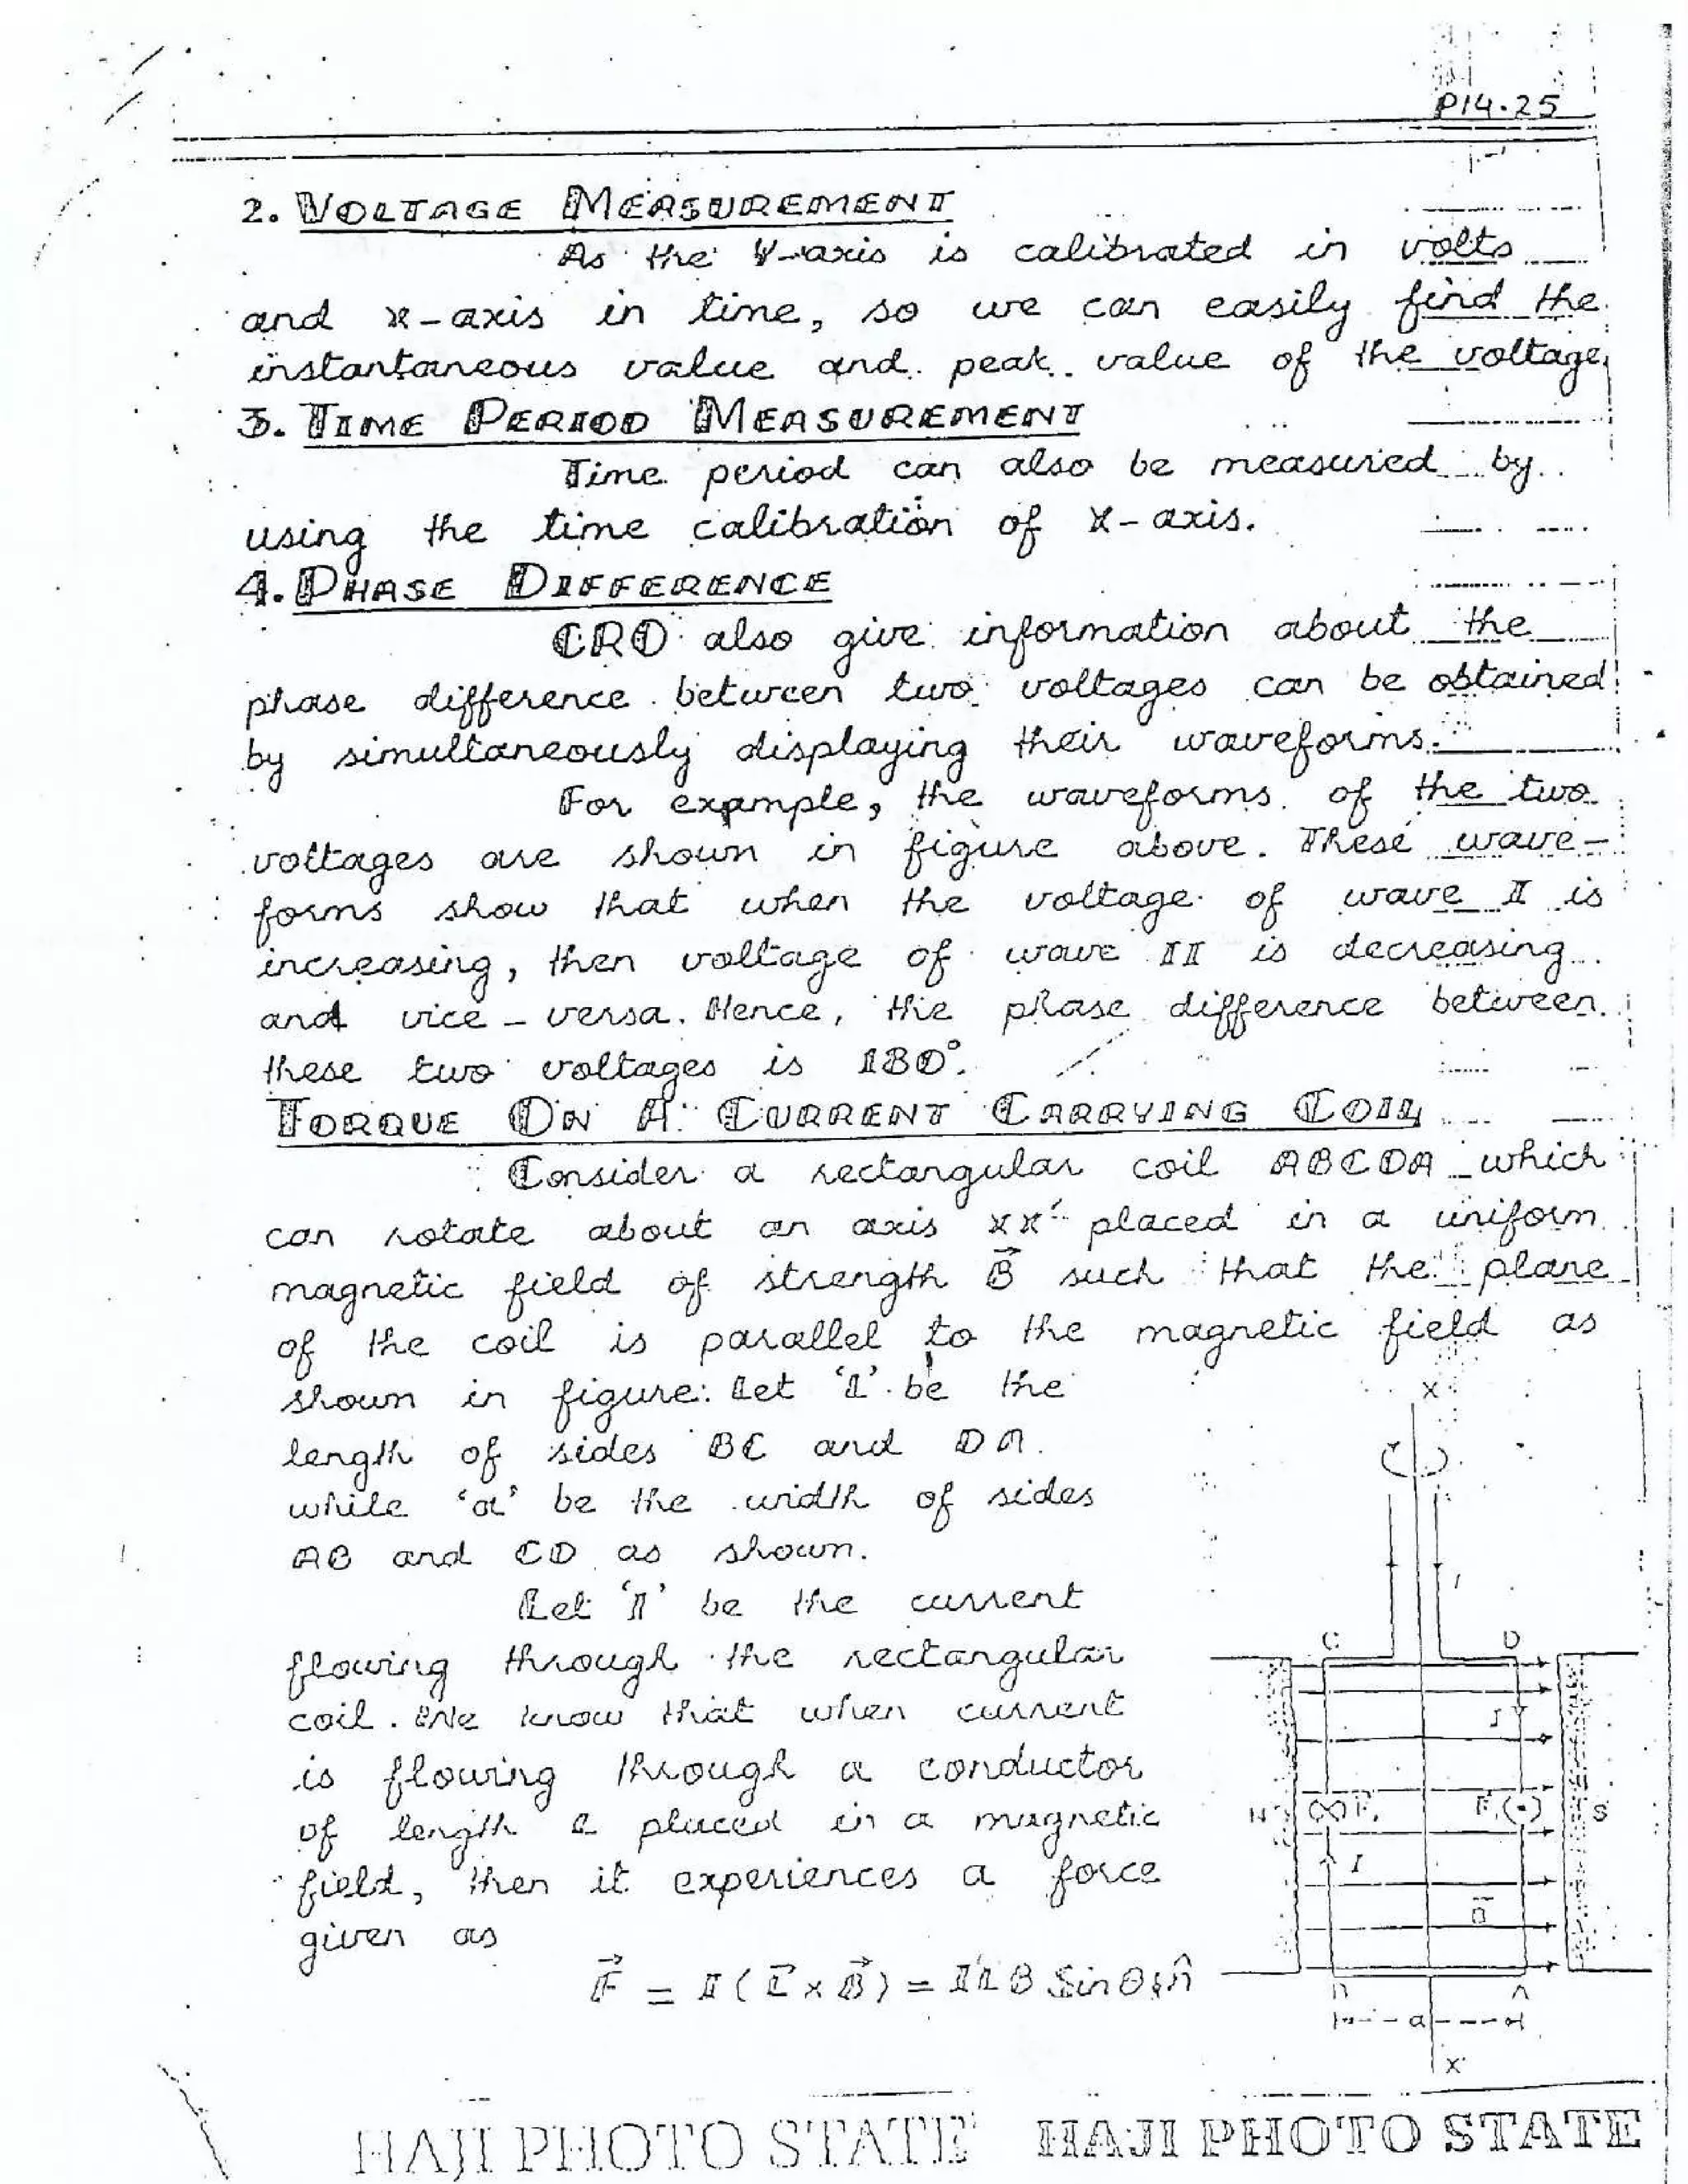 P14.25
2. VOLTAGE MEASUREMENT
As the Y-axis is calibrated in volts
and x-axis in time, so we can easily find the
instantaneous value and peak value of the voltage.
3. TIME PERIOD MEASUREMENT
Time period can also be measured by
using the time calibration of X-axis.
4. PHASE DIFFERENCE
CRO also give information about the
phase difference between two voltages can be obtained
by simultaneously displaying their waveforms.
For example, the waveforms of the two
voltages are shown in figure above. These wave-
forms show that when the voltage of wave I is
increasing, then voltage of wave II is decreasing
and vice-versa. Hence, the phase difference between
these two voltages is 180°.
TORQUE ON A CURRENT CARRYING COIL
Consider a rectangular coil ABCDA which
can rotate about an axis xx' placed in a uniform
magnetic field of strength B⃗ such that the plane
of the coil is parallel to the magnetic field as
shown in figure. Let 'L' be the
length of sides BC and DA.
while 'a' be the width of sides
AB and CD as shown.
Let 'I' be the current
flowing through the rectangular
coil. We know that when current
is flowing through a conductor
of length L placed in a magnetic
field, then it experiences a force
given as
F⃗ = I(L⃗ × B⃗) = ILB Sinθ n̂
X
I
C D
I
N F, F, S
I
B⃗
B A
a
X'
HAJI PHOTO STATE HAJI PHOTO STATE